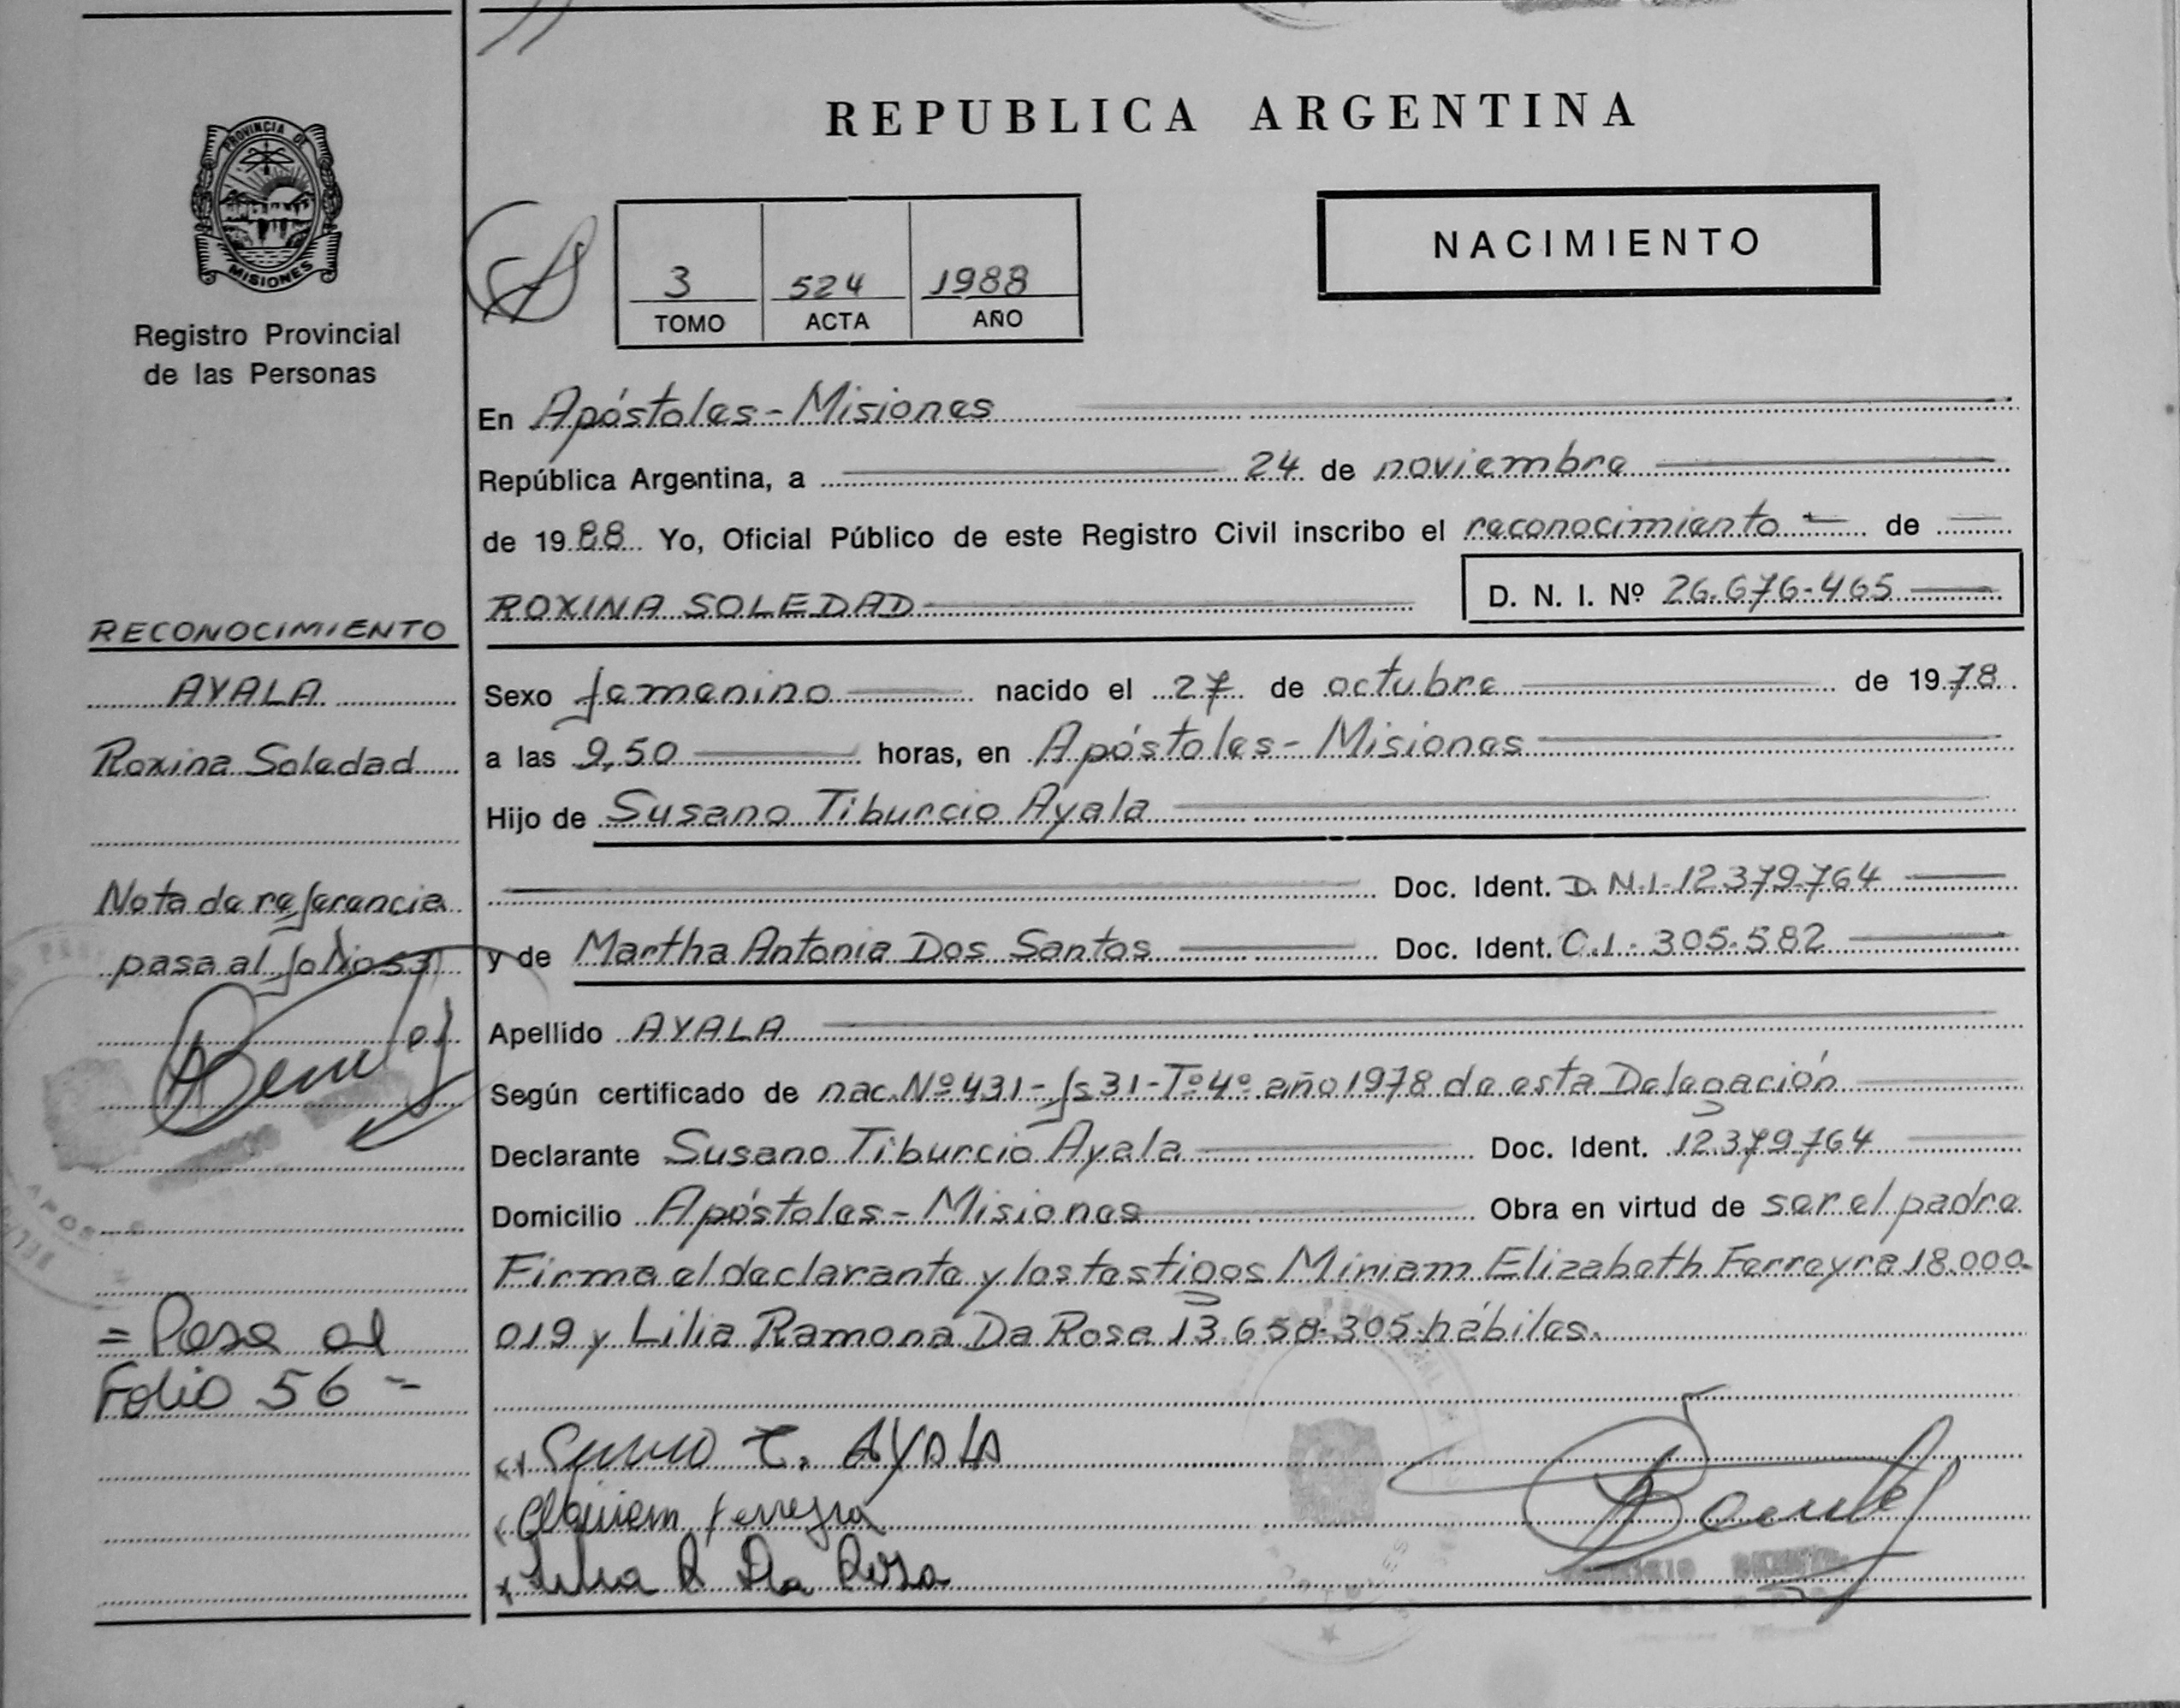 REPUBLICA ARGENTINA
PROVINCIA DE
MISIONES
Registro Provincial
de las Personas
NACIMIENTO
3 524 1988
TOMO ACTA AÑO
En Apóstoles - Misiones
República Argentina, a 24 de noviembre
de 1988 Yo, Oficial Público de este Registro Civil inscribo el reconocimiento de
ROXINA SOLEDAD D. N. I. Nº 26.676.465
RECONOCIMIENTO
AYALA
Roxina Soledad
Nota de referencia
pasa al folio
= Pasa al
Folio 56 =
Sexo femenino nacido el 27 de octubre de 1978
a las 9,50 horas, en Apóstoles - Misiones
Hijo de Susano Tiburcio Ayala
Doc. Ident. D.N.I. 12.379.764
y de Martha Antonia Dos Santos Doc. Ident. C.I. 305.582
Apellido AYALA
Según certificado de nac. Nº 431 - fs 31 - Tº 4º año 1978 de esta Delegación
Declarante Susano Tiburcio Ayala Doc. Ident. 12.379.764
Domicilio Apóstoles - Misiones Obra en virtud de ser el padre
Firma el declarante y los testigos Miriam Elizabeth Ferreyra 18.000.
019 y Lilia Ramona Da Rosa 13.658.305 hábiles.
T. AYALA
Ferreyra
Lilia R Da Rosa